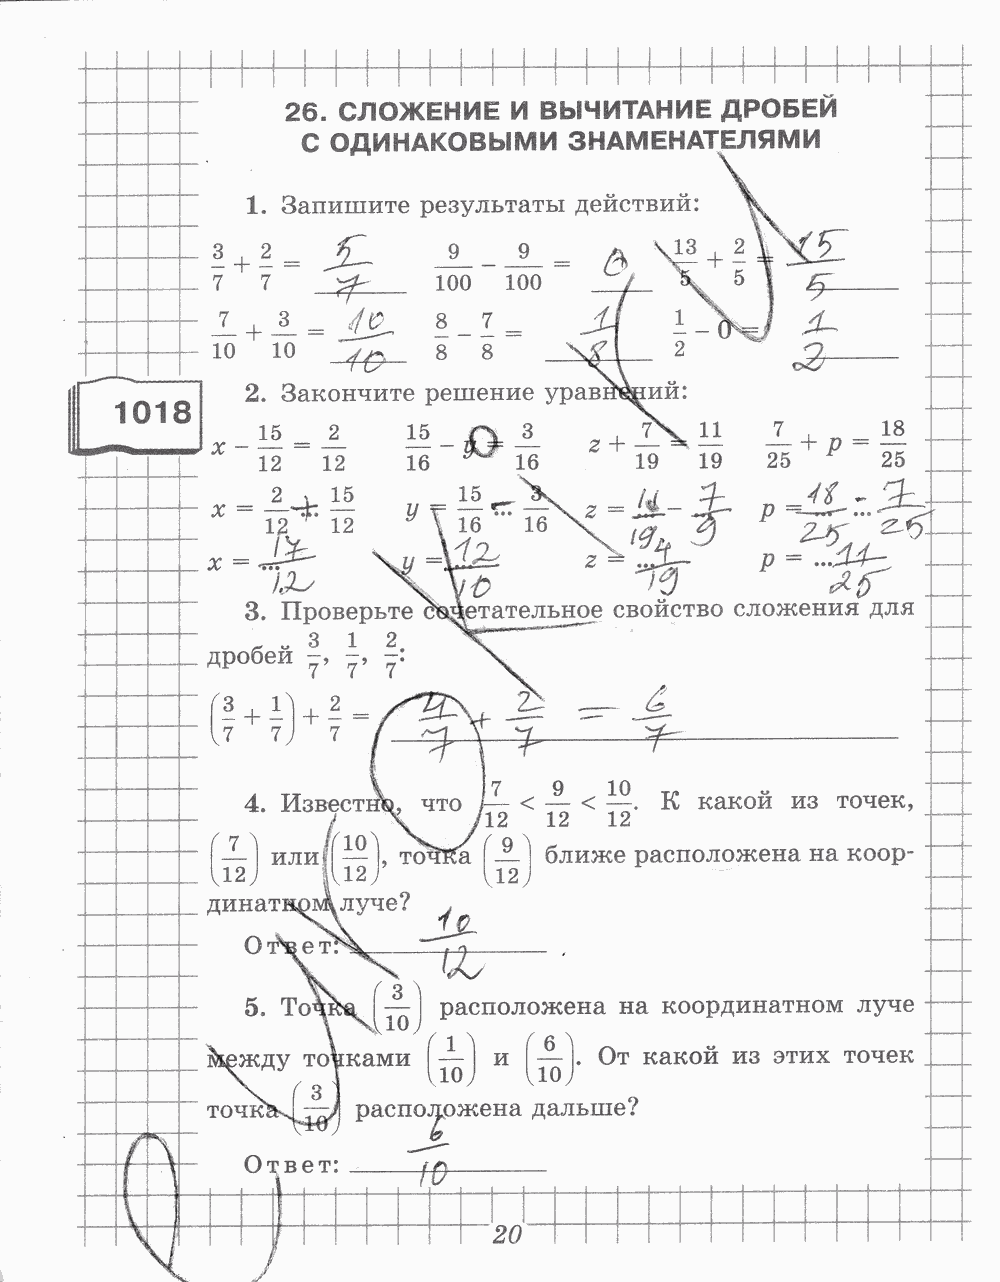 26. СЛОЖЕНИЕ И ВЫЧИТАНИЕ ДРОБЕЙ
С ОДИНАКОВЫМИ ЗНАМЕНАТЕЛЯМИ
1. Запишите результаты действий:
3/7 + 2/7 = 5/7 9/100 − 9/100 = 0 13/5 + 2/5 = 15/5
7/10 + 3/10 = 10/10 8/8 − 7/8 = 1/8 1/2 − 0 = 1/2
1018
2. Закончите решение уравнений:
x − 15/12 = 2/12 15/16 − y = 3/16 z + 7/19 = 11/19 7/25 + p = 18/25
x = 2/12 + 15/12 y = 15/16 − 3/16 z = 11/19 − 7/9 p = 18/25 − 7/25
x = 17/12 y = 12/10 z = 4/19 p = 11/25
3. Проверьте сочетательное свойство сложения для
дробей 3/7, 1/7, 2/7:
(3/7 + 1/7) + 2/7 = 4/7 + 2/7 = 6/7
4. Известно, что 7/12 < 9/12 < 10/12. К какой из точек,
(7/12) или (10/12), точка (9/12) ближе расположена на коор-
динатном луче?
Ответ: 10/12.
5. Точка (3/10) расположена на координатном луче
между точками (1/10) и (6/10). От какой из этих точек
точка (3/10) расположена дальше?
Ответ: 6/10
20